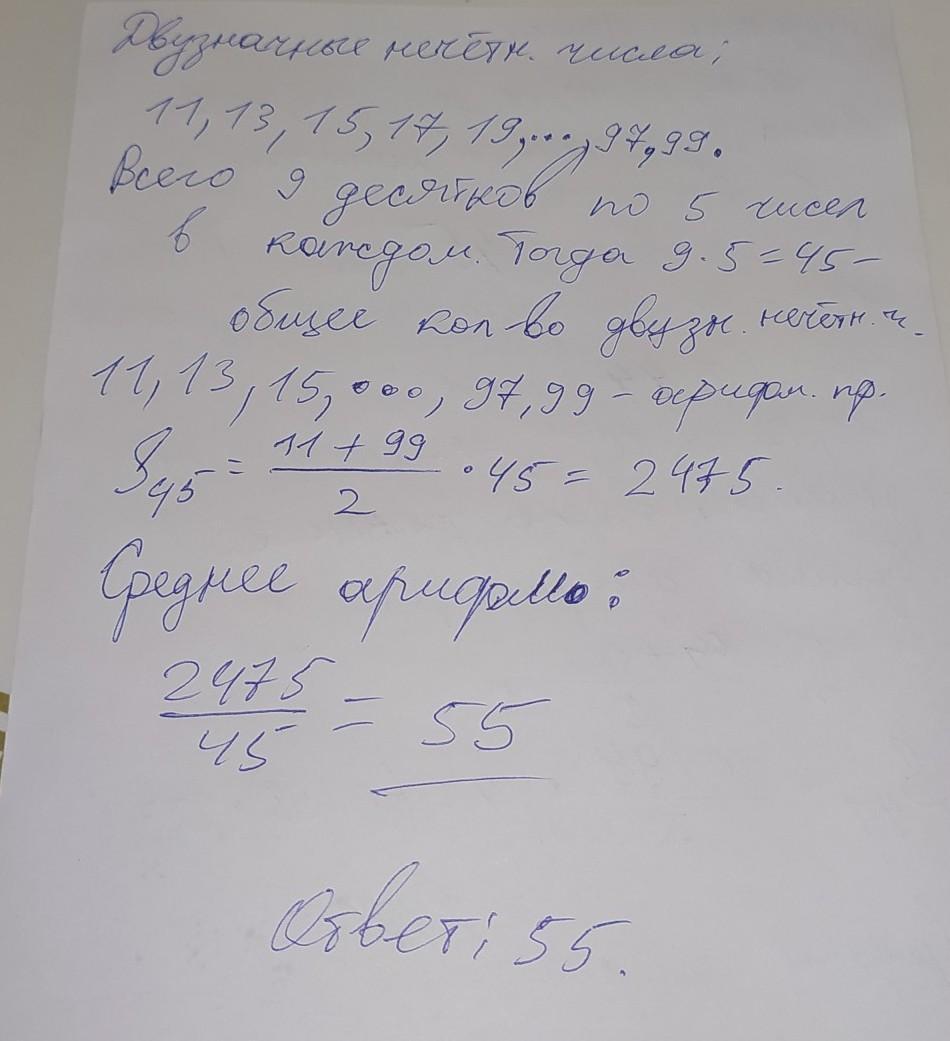 Двузначные нечётн. числа:
11, 13, 15, 17, 19, ..., 97, 99.
Всего 9 десятков по 5 чисел
в каждом. Тогда 9·5=45 –
общее кол-во двузн. нечётн. ч.
11, 13, 15, ..., 97, 99 – арифм. пр.
S₄₅ = (11 + 99)/2 · 45 = 2475.
Среднее арифм.:
2475/45 = 55
Ответ: 55.